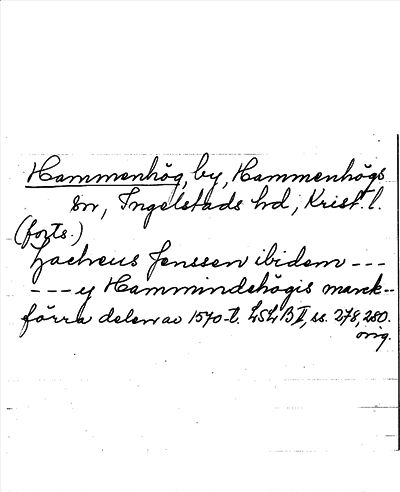 Hammenhög, by, Hammenhögs
sn, Ingelstads hd, Krist. l.
(forts.)
Zacheus Jenssen ibidem ---
--- y Hammindehögis marck--
förra delen av 1570-t. LSLB II, ss. 278, 280.
orig.